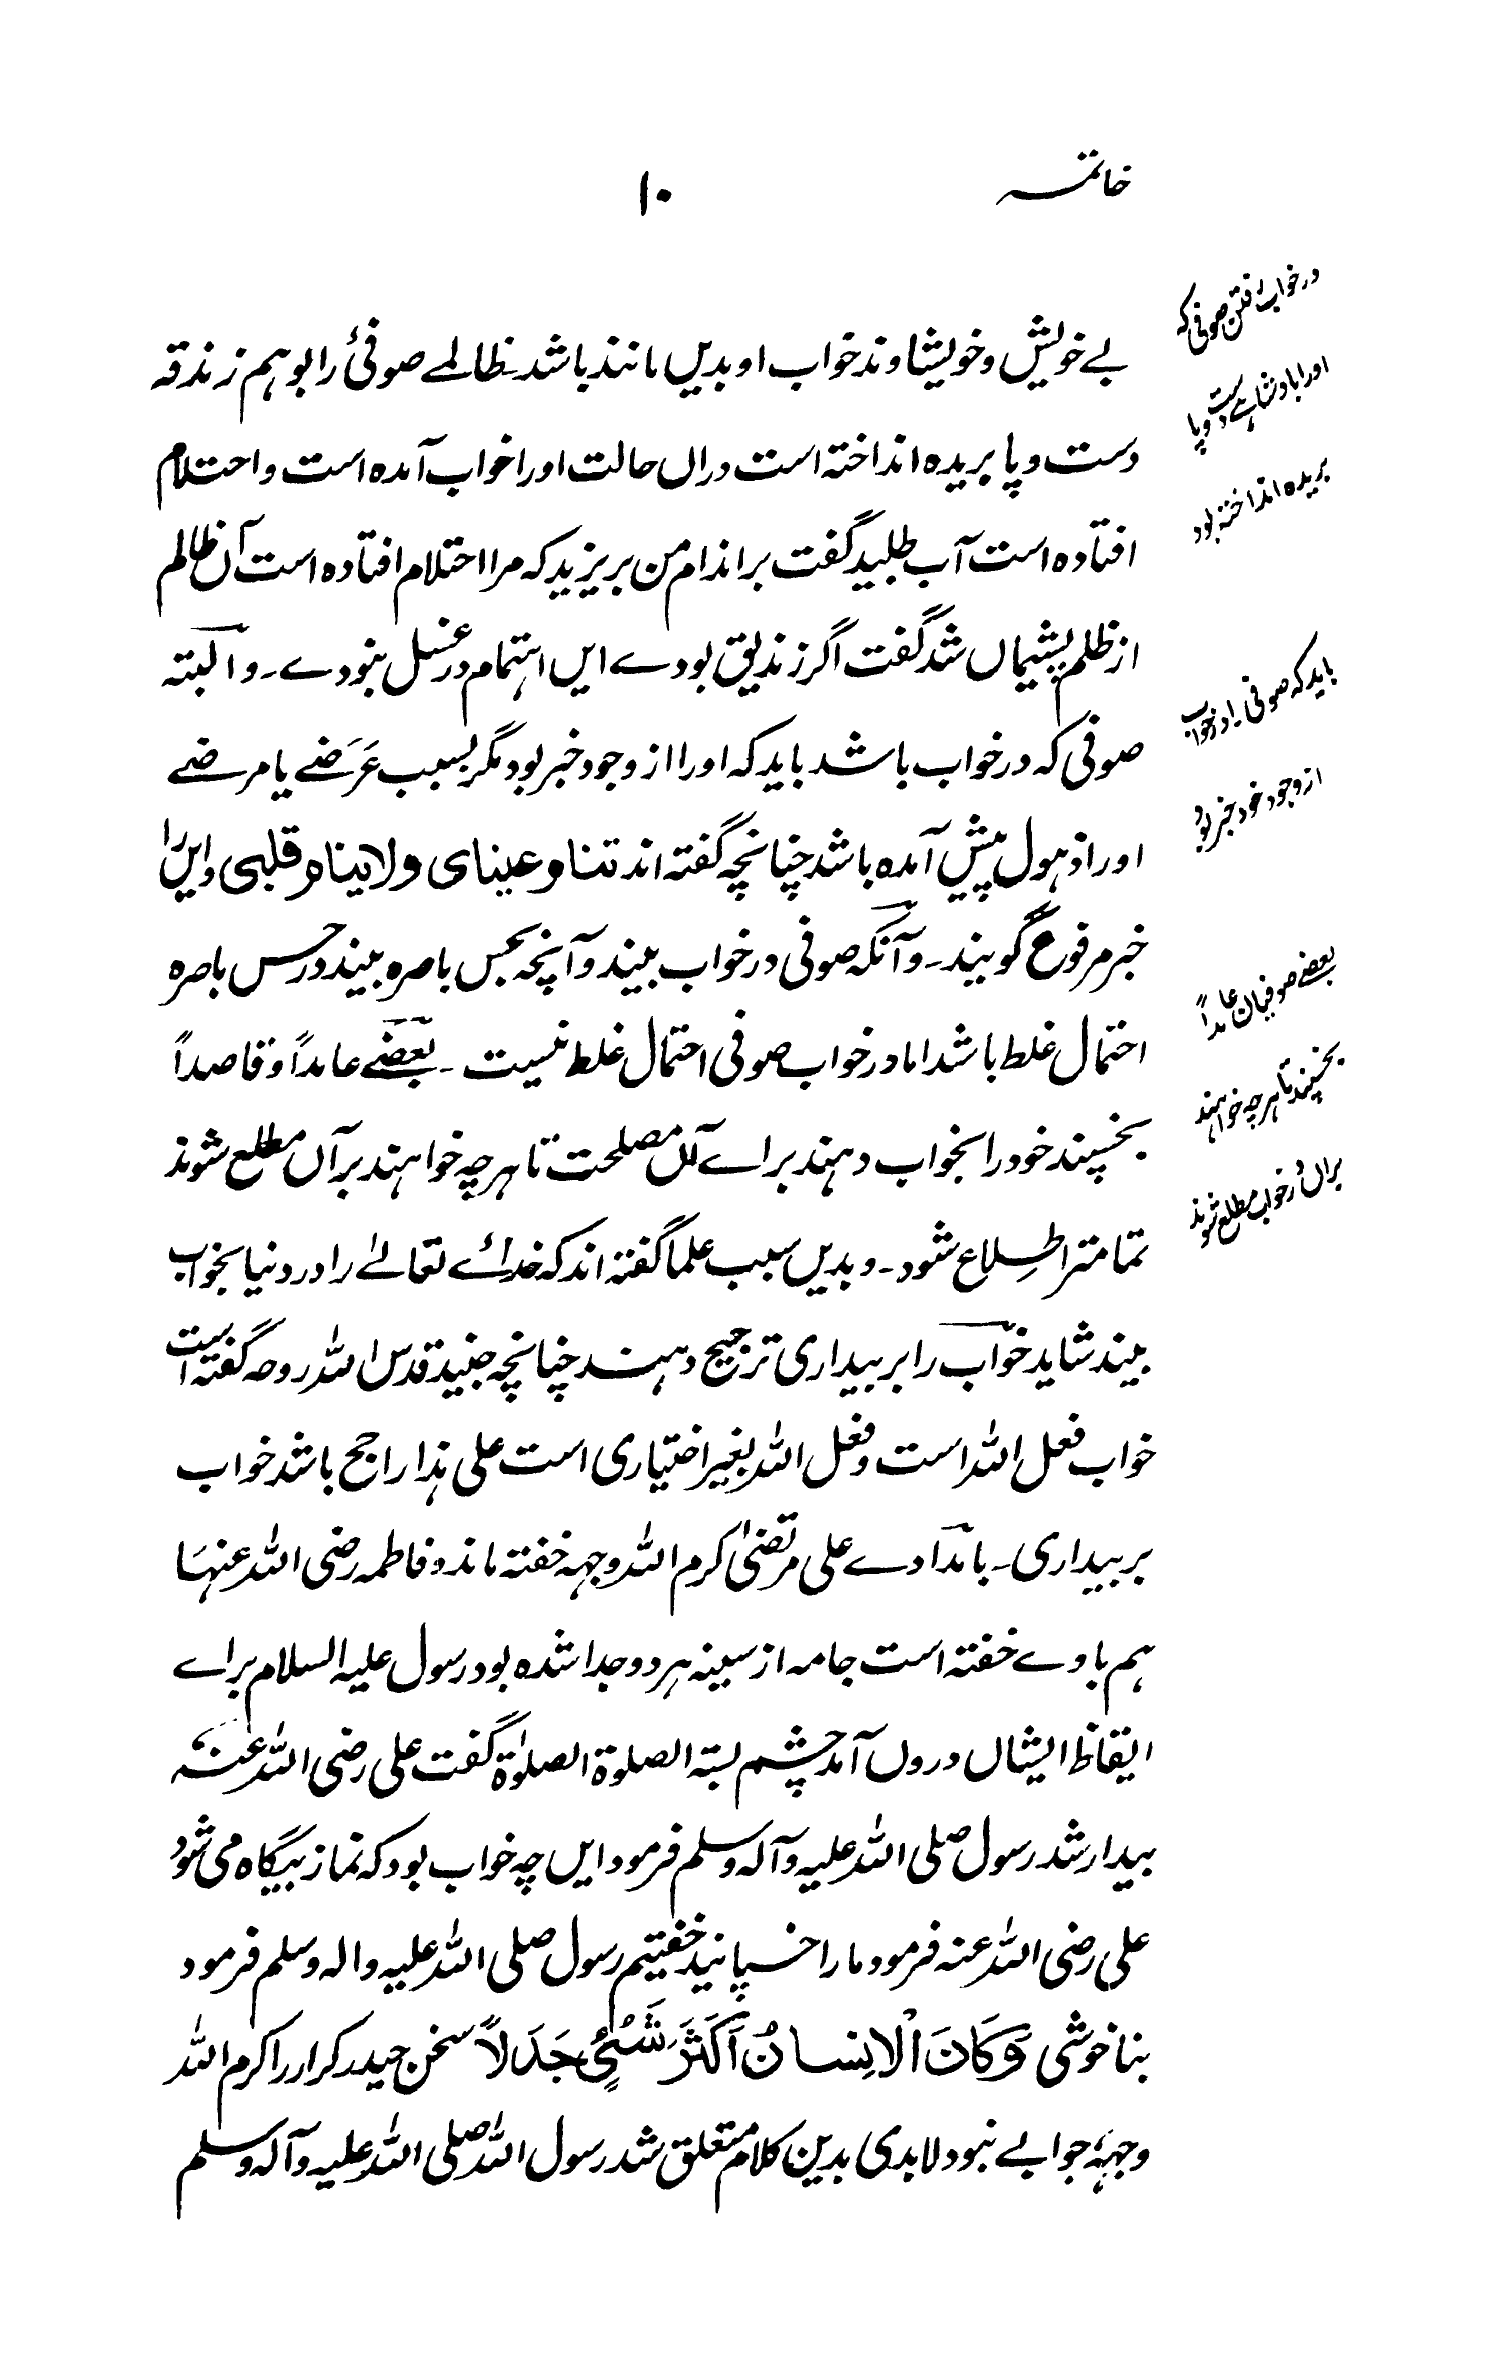 خاتمہ
۱۰
بے خویش و خویشاوند خواب او بدیں مانند باشد۔ ظالمے صوفیٔ را بوہم زندقہ
دست و پا بریدہ انداختہ است دراں حالت اورا خواب آمدہ است و احتلام
افتادہ است آب طلبید گفت بر اندام من بریزید کہ مرا احتلام افتادہ است آں ظالم
از ظلم پشیماں شد گفت اگر زندیق بودے ایں اہتمام در غسل نبودے۔ و البتہ
صوفی کہ در خواب باشد باید کہ اورا از وجود خبر بود مگر بسبب عَرَضے یا مرضے
اورا ذہول پیش آمدہ باشد چنانچہ گفتہ اند تنام عینای ولاینام قلبی و ایں را
خبر مرفوع گویند۔ و آنکہ صوفی در خواب بیند و آنچہ بحس باصرہ بیند در حس باصرہ
احتمال غلط باشد اما در خواب صوفی احتمال غلط نیست۔ بعضے عامداً و قاصداً
بخسپند خود را بخواب دہند براے آں مصلحت تا ہرچہ خواہند بر آں مطلع شوند
تمامتر اطلاع شود۔ و بدیں سبب علما گفتہ اند کہ خداے تعالےٰ را در دنیا بخواب
بیند شاید خواب را بر بیداری ترجیح دہند چنانچہ جنید قدس اللہ روحہ گفتہ است
خواب فعل اللہ است و فعل اللہ بغیر اختیاری است علی ہذا راجح باشد خواب
بر بیداری۔ بامدادے علی مرتضیٰ کرم اللہ وجہہ خفتہ ماند و فاطمہ رضی اللہ عنہَا
ہم باوے خفتہ است جامہ از سینہ ہر دو جدا شدہ بود رسول علیہ السلام براے
ایقاظ ایشاں دروں آمد چشم بستہ الصلوٰۃ الصلوٰۃ گفت علی رضی اللہ عنہ
بیدار شد رسول صلی اللہ علیہ وآلہ وسلم فرمود ایں چہ خواب بود کہ نماز بیگاہ می شود
علی رضی اللہ عنہ فرمود مارا خسپانید خفتیم رسول صلی اللہ علیہ والہ وسلم فرمود
بناخوشی وَكَانَ الْاِنسانُ اَكْثَرَ شَیْءٍ جَدَلاً سخن حیدر کرار را کرم اللہ
وجہہٗ جوابے نبود لابدی بدین کلام متعلق شد رسول اللہ صلی اللہ علیہ وآلہ وسلم
در خواب رفتن صوفی کہ
اورا بادشاہے دست و پا
بریدہ انداختہ بود
باید کہ صوفی را در خواب
از وجود خود خبر بود
بعضے صوفیان عامداً
بخسپند تا ہرچہ خواہند
براں در خواب مطلع شوند